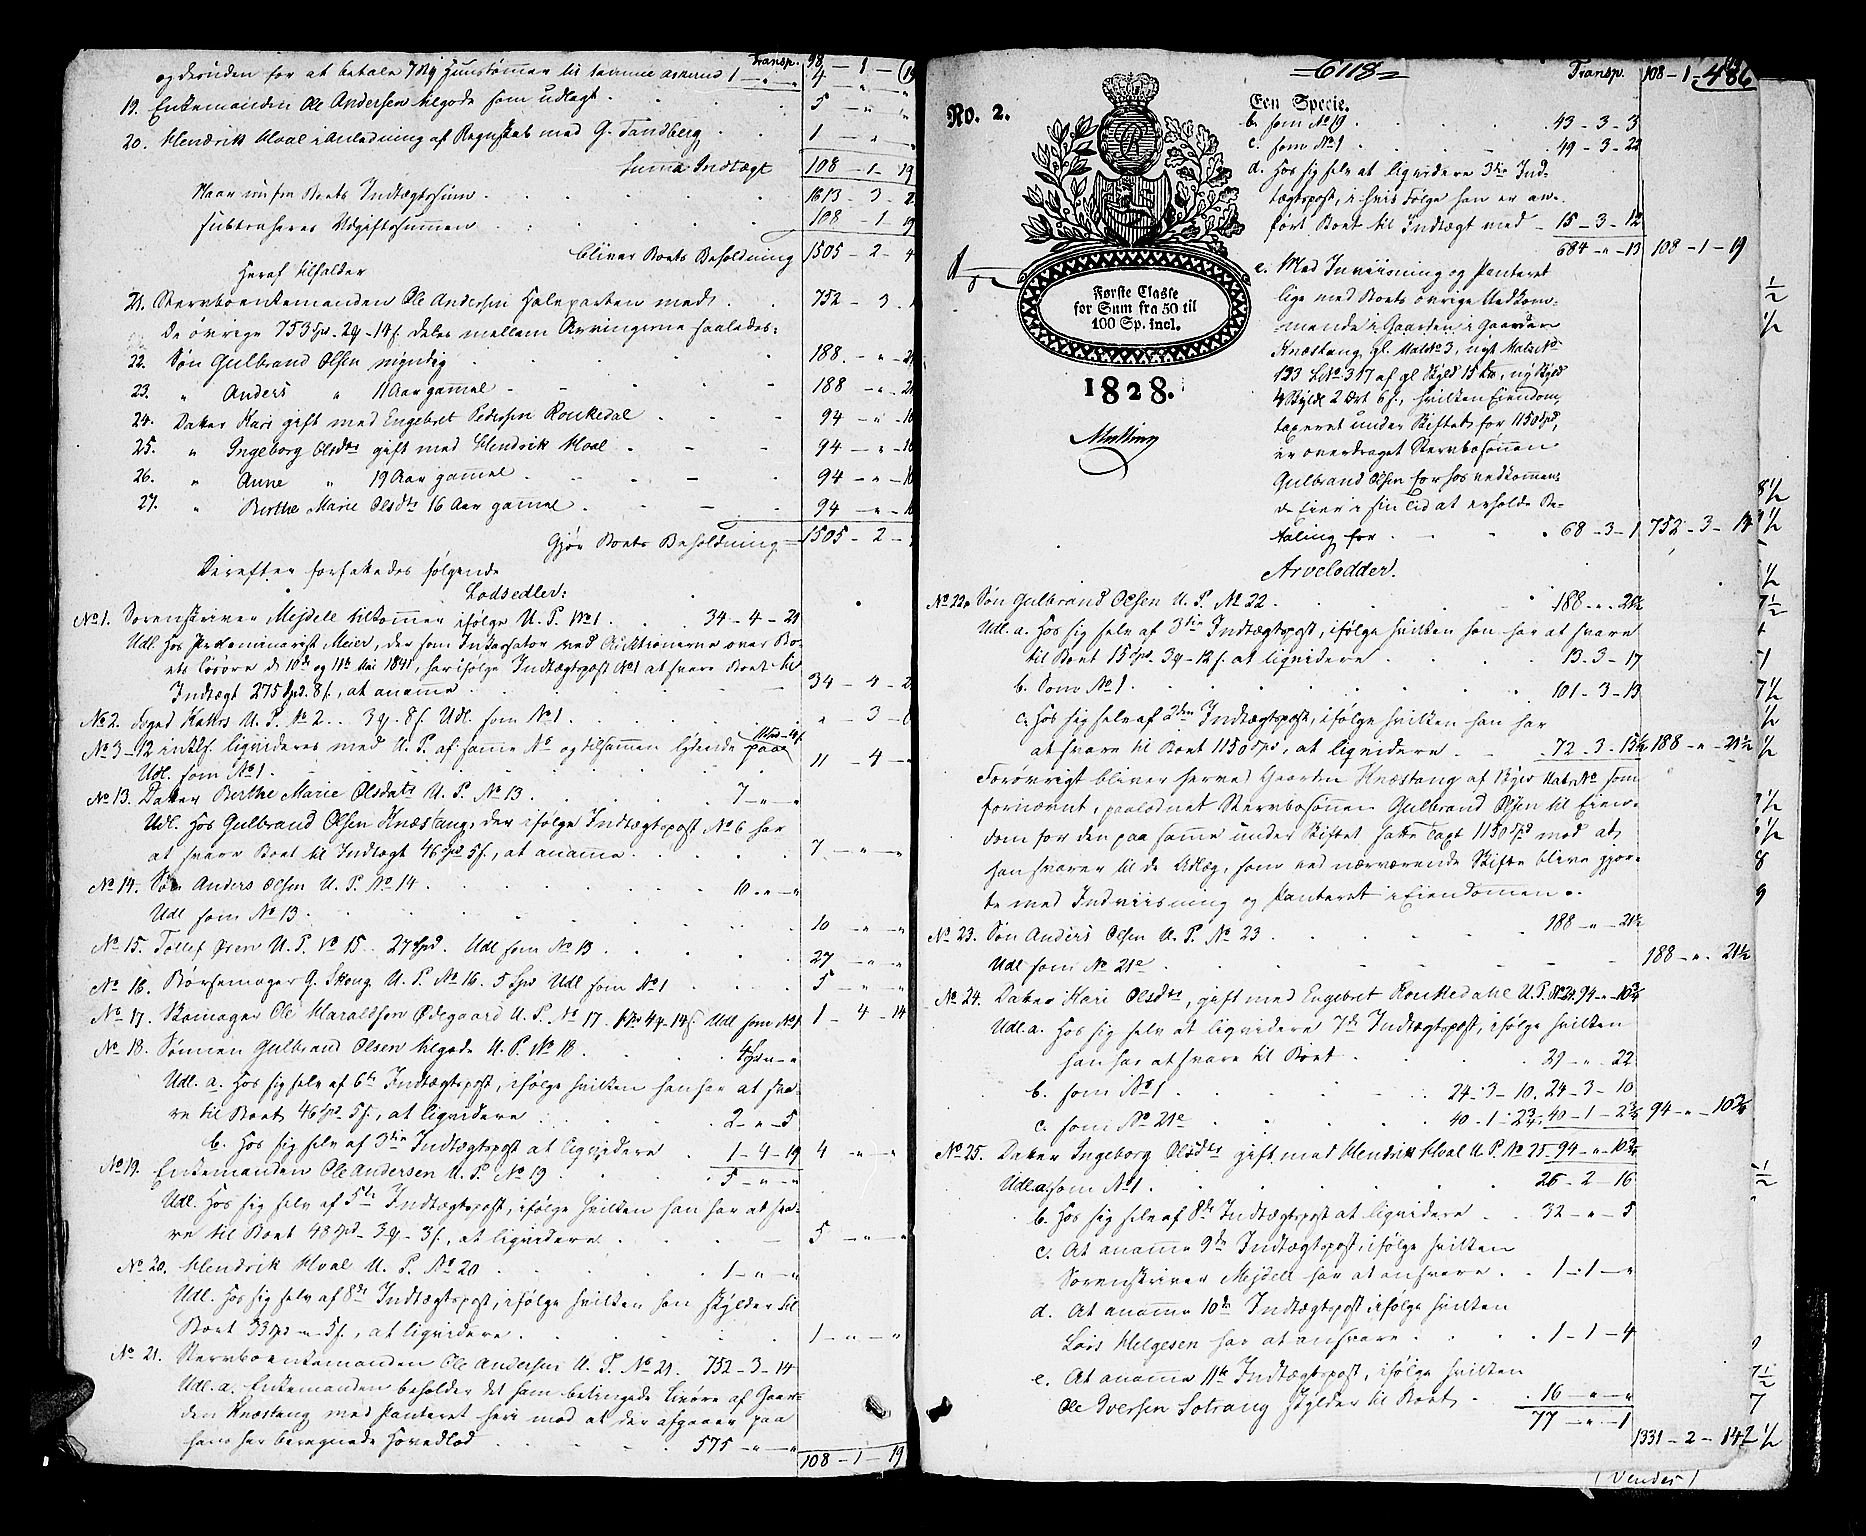 Transp. 98 - 1 - 19
og desuden for at betale 7 Rg Huustømmer til samme Askerud 1 - " - " 4 - " - "
19. Enkemanden Ole Andersen tilgode som udlagt 5 - " - "
20. Hendrik Hval i Anledning af Regnskab med G. Tandberg 1 - " - "
Summa Indtægt 108 - 1 - 19
Naar nu fra Boets Indtægtssum 1613 - 3 - 2
subtraheres Udgiftssummen 108 - 1 - 19
bliver Boets Beholdning 1505 - 2 - 4
Heraf tilfalder
21. Stervboenkemanden Ole Andersen Halvparten med 752 - 3 -
De øvrige 753 Spd. 2 - 14 s. deles mellem Arvingerne saaledes:
22. Søn Gulbrand Olsen myndig 188 - " - 2
23. " Anders " 11 Aar gammel 188 - " - 2
24. Datter Kari gift med Engebret Pedersen Ronkedal 94 - " - 10
25. " Ingeborg Olsdtr gift med Hendrik Hval 94 - " - 10
26. " Anne " 19 Aar gammel 94 - " - 10
27. " Berthe Marie Olsdtr 16 Aar gammel 94 - " - 10
Gjør Boets Beholdning 1505 - 2 -
Derefter forfattedes følgende
Lodsedler:
No 1. Sorenskriver Mejdell tilkommer ifølge U. P. No 1. 34 - 4 - 21
Udl. hos Prokurator Meier, der som Inkassator ved Auktionerne over Bo-
ets Løsøre d. 10de og 11te Mai 1841, har ifølge Indtægtspost No 1 at svare Boet til
Indtægt 275 Spd. 8 s., at anamme 34 - 4 - 2
No 2. Foged Kahrs U. P. No 2 .. 3 - 8 s. Udl. som No 1. " - 3 - 8
No 3 - 12 inkl. liqvideres med U. P. af samme No og tilsammen lydende paa
Udl. som No 1. 11 - 4 - "
No 13. Datter Berthe Marie Olsdatr U. P. No 13 7 - " - "
Udl. hos Gulbrand Olsen Knæstang, der ifølge Indtægtspost No 6 har
at svare Boet til Indtægt 46 Spd 5 s., at anamme 7 - " - "
No 14. Søn Anders Olsen U. P. No 14. 10 - " - "
Udl. som No 13. 10 - " - "
No 15. Tollef U. P. No 15. 27 Spd. Udl. som No 13 27 - " - "
No 16. Børsemager G. Skoug U. P. No 16. 5 Spd Udl. som No 1 5 - " - "
No 17. Skomager Ole Haraldsen Ødegaard U. P. No 17. 1 4 - 14 Udl. som No 1 1 - 4 - 14
No 18. Sønnen Gulbrand Olsen tilgode U. P. No 18. 4 - " - "
Udl. a. Hos sig selv af 6te Indtægtspost, ifølge hvilken han har at sva-
re til Boet 46 Spd 5 s., at liqvidere 2 - " - 5
b. Hos sig selv af 3die Indtægtspost at liqvidere 1 - 4 - 19 4 - " - "
No 19. Enkemanden Ole Andersen U. P. No 19 5 - " - "
Udl. Hos sig selv af 5te Indtægtspost, ifølge hvilken han har at sva-
re til Boet 48 Spd - 3 - 3 s., at liqvidere 5 - " - "
No 20. Hendrik Hval U. P. No 20 1 - " - "
Udl. Hos sig selv af 8de Indtægtspost, ifølge hvilken han skylder til
Boet 33 Spd " 5 s., at liqvidere 1 - " - "
No 21. Stervboenkemanden Ole Andersen U. P. No 21. 752 - 3 - 14
Udl. a. Enkemanden beholder det ham betingede Livøre af Gaar-
den Knæstang med Panteret heri mod at der afgaaer paa
hans her beregnede Hovedlod 575 - " - "
108 - 1 - 19
=6118= Transp. 108 - 1 - 486
No. 2.
Een Specie.
Første Classe
for Sum fra 50 til
100 Sp. incl.
1828.
b. som No 19 43 - 3 - 3
c. som No 1 49 - 3 - 22
d. Hos sig selv at liqvidere 3die Ind-
tægtspost, i hvis Følge han er an-
ført Boet til Indtægt med 15 - 3 - 12
684 - " - 13 108 - 1 - 19
e. Med Inviisning og Panteret
lige med Boets øvrige Vedkom-
mende i Gaarden, i Gaarden
Knæstang, gl. Matr No 3, nyt Matr No
123 L No 317 af gl. Skyld 15 , ny Skyld
4 Skyld 2 Ort 6 s., hvilken Eiendom,
taxeret under Skiftet for 1150 Spd,
er overdraget Stervbosønnen
Gulbrand Olsen for hos vedkommen-
de Eier i sin Tid at erholde Be-
taling for 68 - 3 - 1 752 - 3 - 14
Arvelodder.
No 22. Søn Gulbrand Olsen U. P. No 22. 188 - " - 21½
Udl. a. Hos sig selv af 3die Indtægtspost, ifølge hvilken han har at svare
til Boet 15 Spd. 3 - 12 s. at liqvidere 13 - 3 - 17
b. Som No 1. 101 - 3 - 13
c. Hos sig selv af 2den Indtægtspost, ifølge hvilken han har
at svare til Boet 1150 Spd, at liqvidere 72 - 3 - 15½ 188 - " - 21½
Forøvrigt bliver herved Gaarden Knæstang af Skyld Matr No som
fornævnt, paalodnet Stervbosønnen Gulbrand Olsen til Eien-
dom for den paa samme under Skiftet satte Taxt 1150 Spd mod at
han svarer til de Udlæg, som ved nærværende Skifte blive gjor-
te med Indviisning og Panteret i Eiendommen.
No 23. Søn Anders Olsen U. P. No 23 188 - " - 21½
Udl. som No 21e 188 - " - 21½
No 24. Datter Kari Olsdtr, gift med Engebret Ronkedahl U. P. No 24 94 - " - 10¾
Udl. a. Hos sig selv at liqvidere 7de Indtægtspost, ifølge hvilken
han har at svare til Boet 29 - " - 22
b. som No 1 24 - 3 - 10. 24 - 3 - 10
c. som No 21e 40 - 1 - 2¾ 40 - 1 - 2¾ 94 - " - 10¾
No 25. Datter Ingeborg Olsdtr gift med Hendrik Hval U. P. No 25 94 - " - 10¾
Udl. a. som No 1. 26 - 2 - 16
b. Hos sig selv af 8de Indtægtspost at liqvidere 32 - " - 5
c. At anamme 9de Indtægtspost, ifølge hvilken
Sorenskriver Mejdell har at ansvare 1 - 1 - "
d. At anamme 10de Indtægtspost, ifølge hvilken
Lars Helgesen har at ansvare 1 - 1 - 4
e. At anamme 11te Indtægtspost, ifølge hvilken
Ole Iversen Sotrang skylder til Boet 16 - " - "
77 - " - 1
1331 - 2 - 14½
(Vendes)